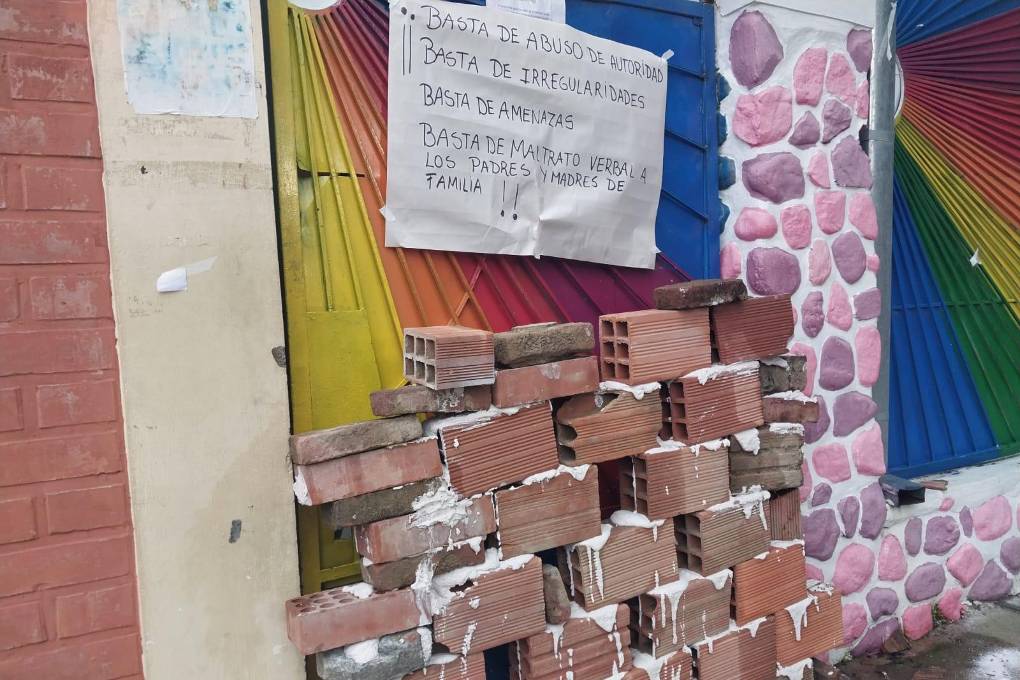 ¡¡ BASTA DE ABUSO DE AUTORIDAD
BASTA DE IRREGULARIDADES
BASTA DE AMENAZAS
BASTA DE MALTRATO VERBAL A
LOS PADRES Y MADRES DE
FAMILIA !!